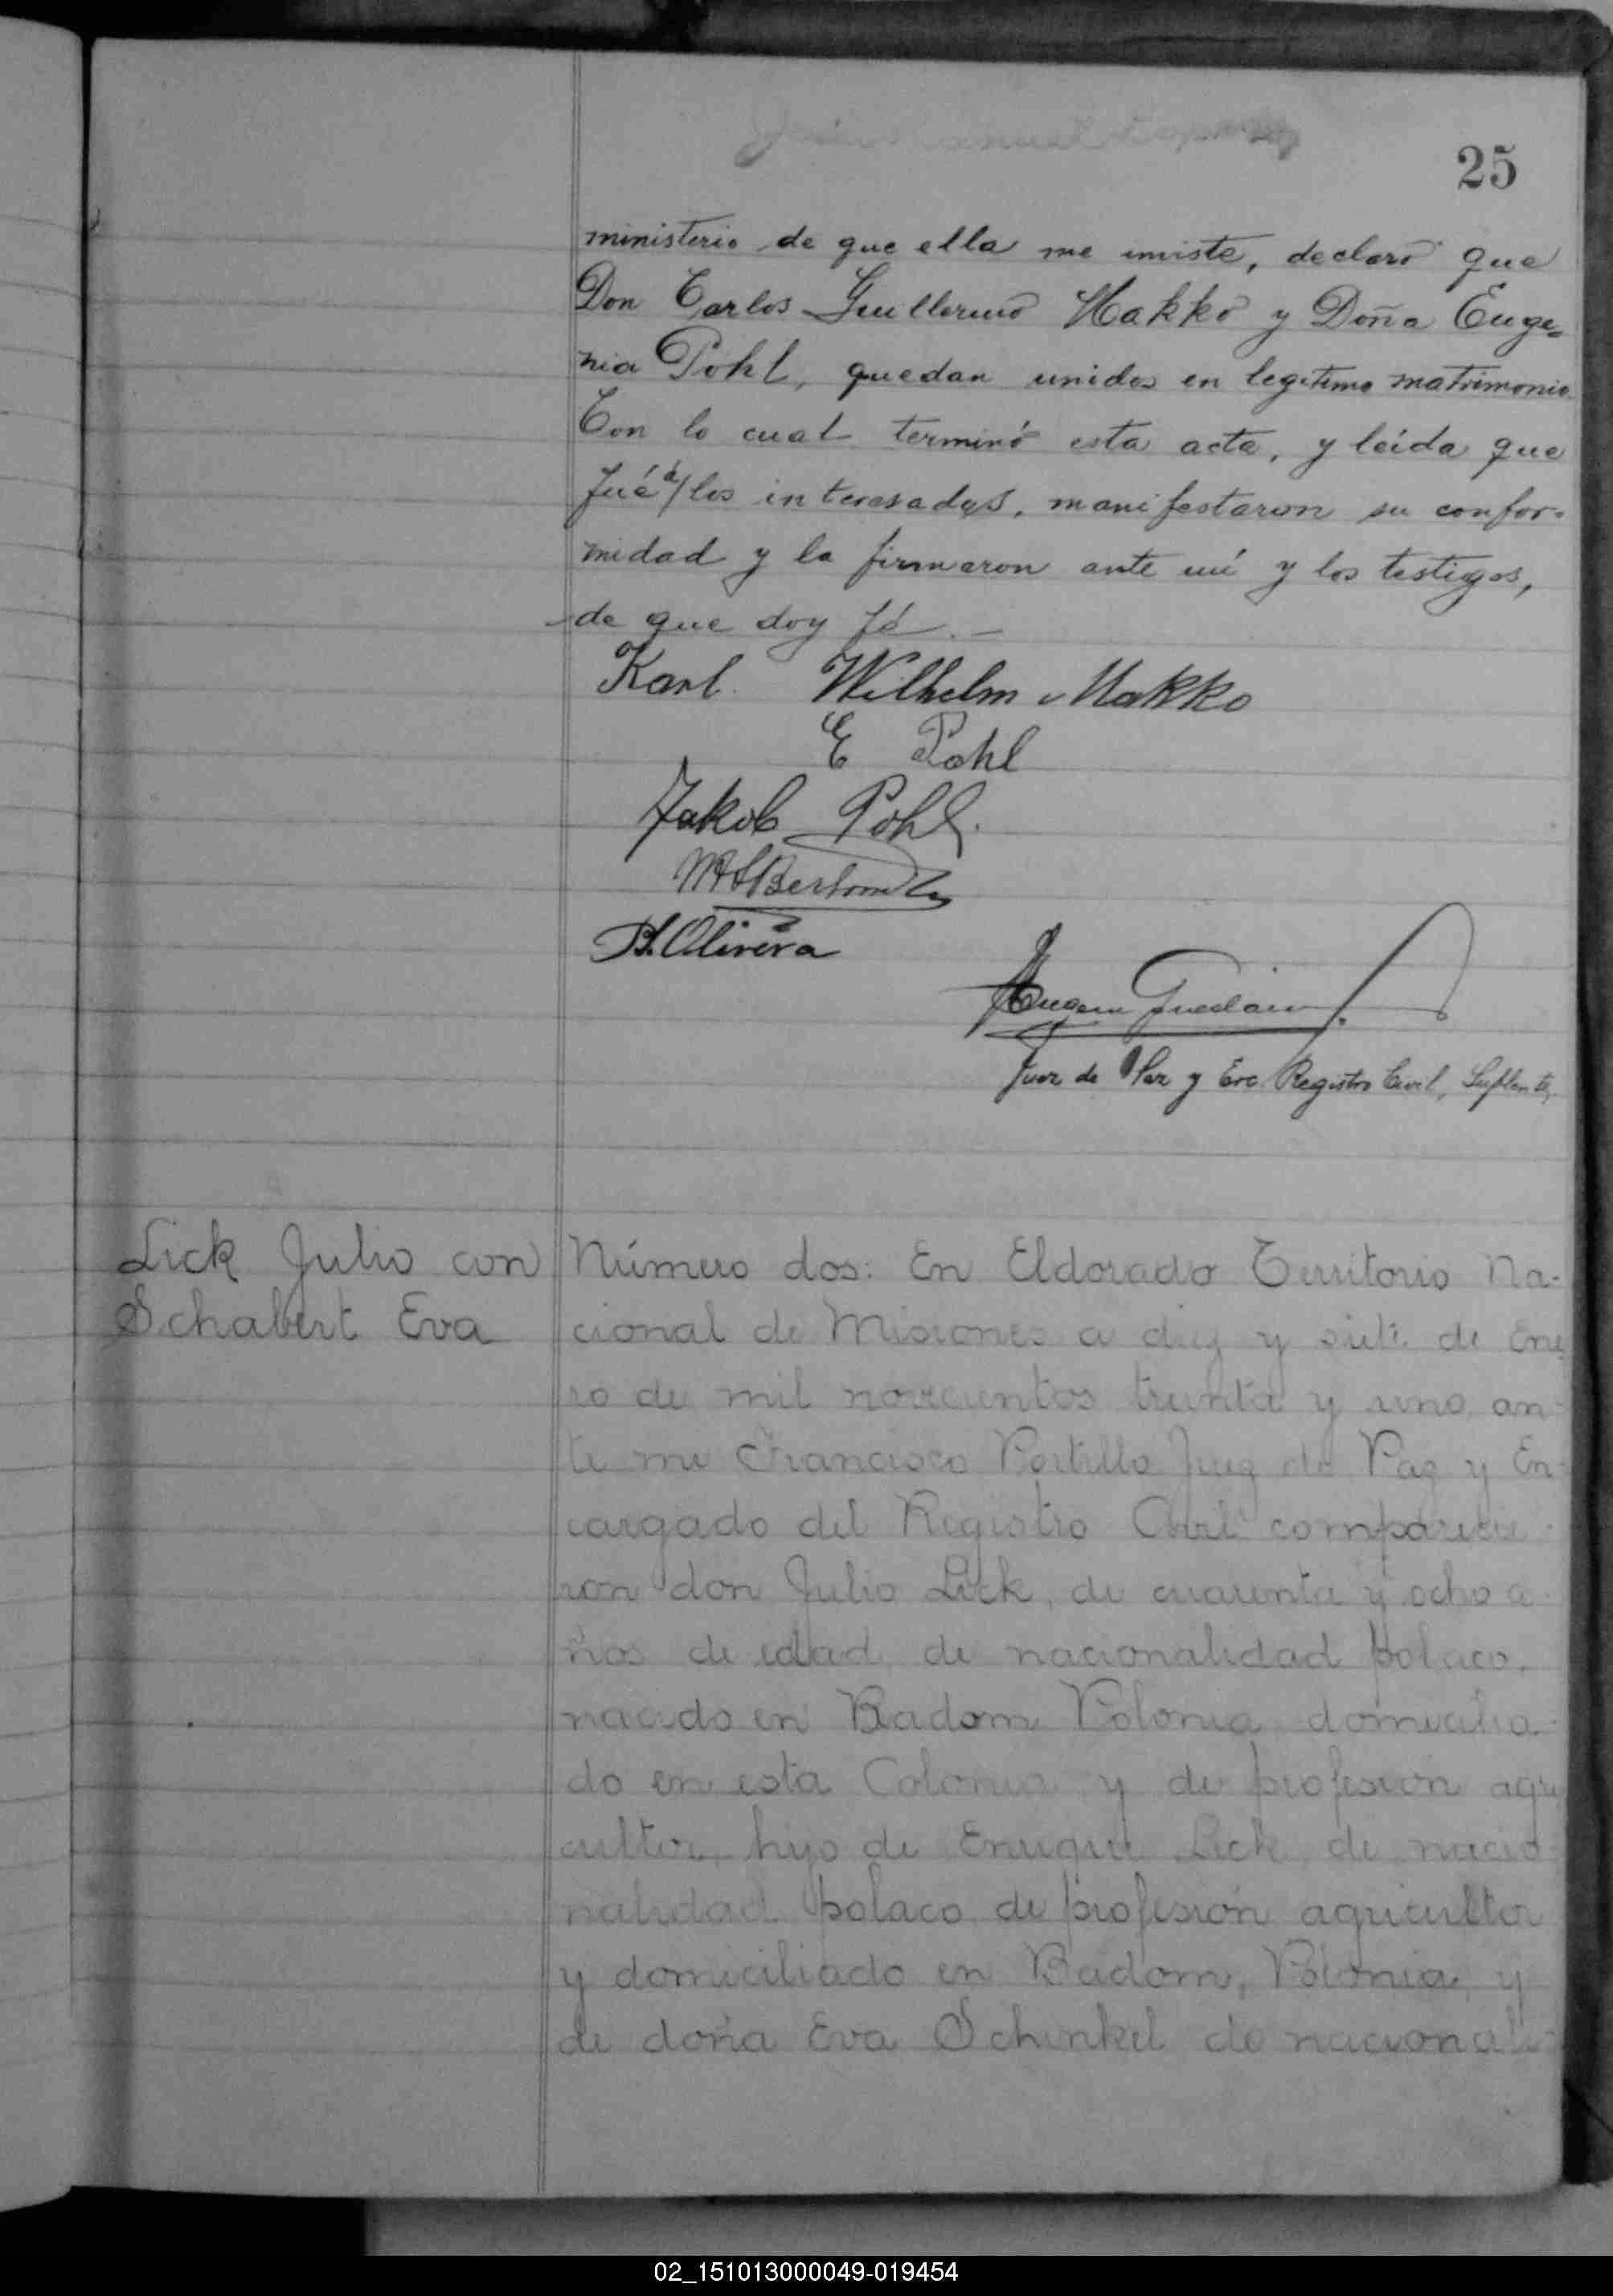 25
ministerio de que ella me inviste, declaro que
Don Carlos Guillermo Makko y Doña Euge=
nia Pohl, quedan unidos en legitimo matrimonio.
Con lo cual terminó esta acta, y leída que
fué á/los interesados, manifestaron su confor-
midad y la firmaron ante mí y los testigos,
de que doy fé.—
Karl Wilhelm Makko
E Pohl
Jakob Pohl.
B. Olivera
Juez de Paz y Enc. Registro Civil, Suplente.
Lick Julio con
Schabert Eva
Número dos: En Eldorado Territorio Na-
cional de Misiones a diez y siete de Ene
ro de mil novecientos treinta y uno, an-
te mi Francisco Portillo Juez de Paz y En-
cargado del Registro Civil comparecie-
ron don Julio Lick, de cuarenta y ocho a-
ños de edad de nacionalidad polaco,
nacido en Radom Polonia domicilia-
do en esta Colonia y de profesión agri
cultor, hijo de Enrique Lick, de nacio-
nalidad polaco, de profesión agricultor
y domiciliado en Radom, Polonia, y
de doña Eva Schinkel de nacionali-
02_151013000049-019454